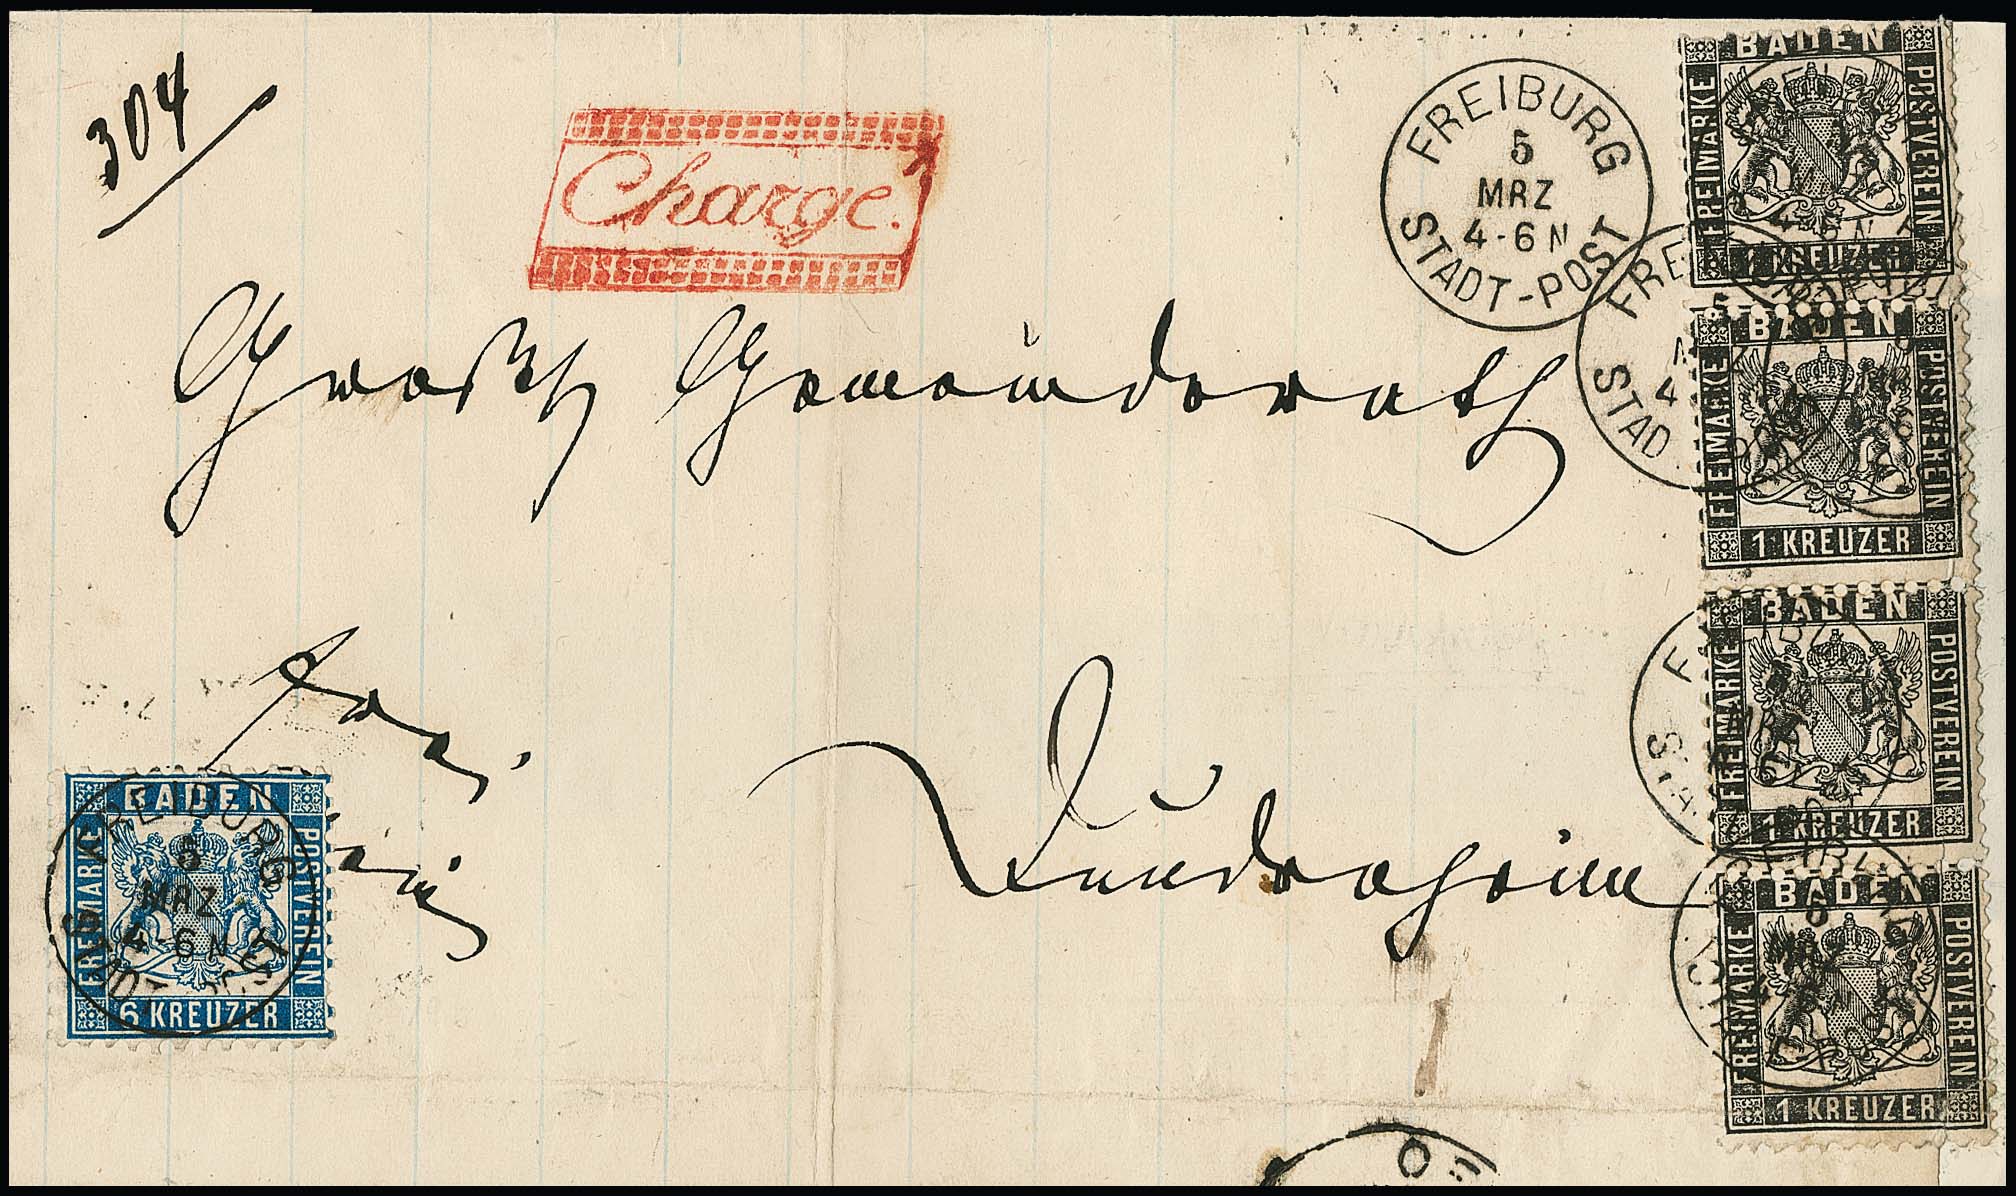 304
Charge.
FREIBURG
5
MRZ
4-6 N
STADT-POST
BADEN
FREIMARKE
POSTVEREIN
1 KREUZER
BADEN
FREIMARKE
POSTVEREIN
1 KREUZER
Großh Gemeinderath
BADEN
FREIMARKE
POSTVEREIN
1 KREUZER
frei
BADEN
FREIMARKE
POSTVEREIN
6 KREUZER
FREIBURG
5
MRZ
4-6 N
STADT-POST
BADEN
FREIMARKE
POSTVEREIN
1 KREUZER